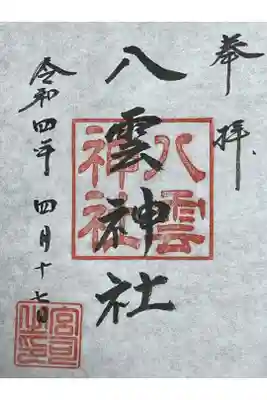 奉拝
八雲神社
八雲
神社
令和四年 四月十七日
宮司之印